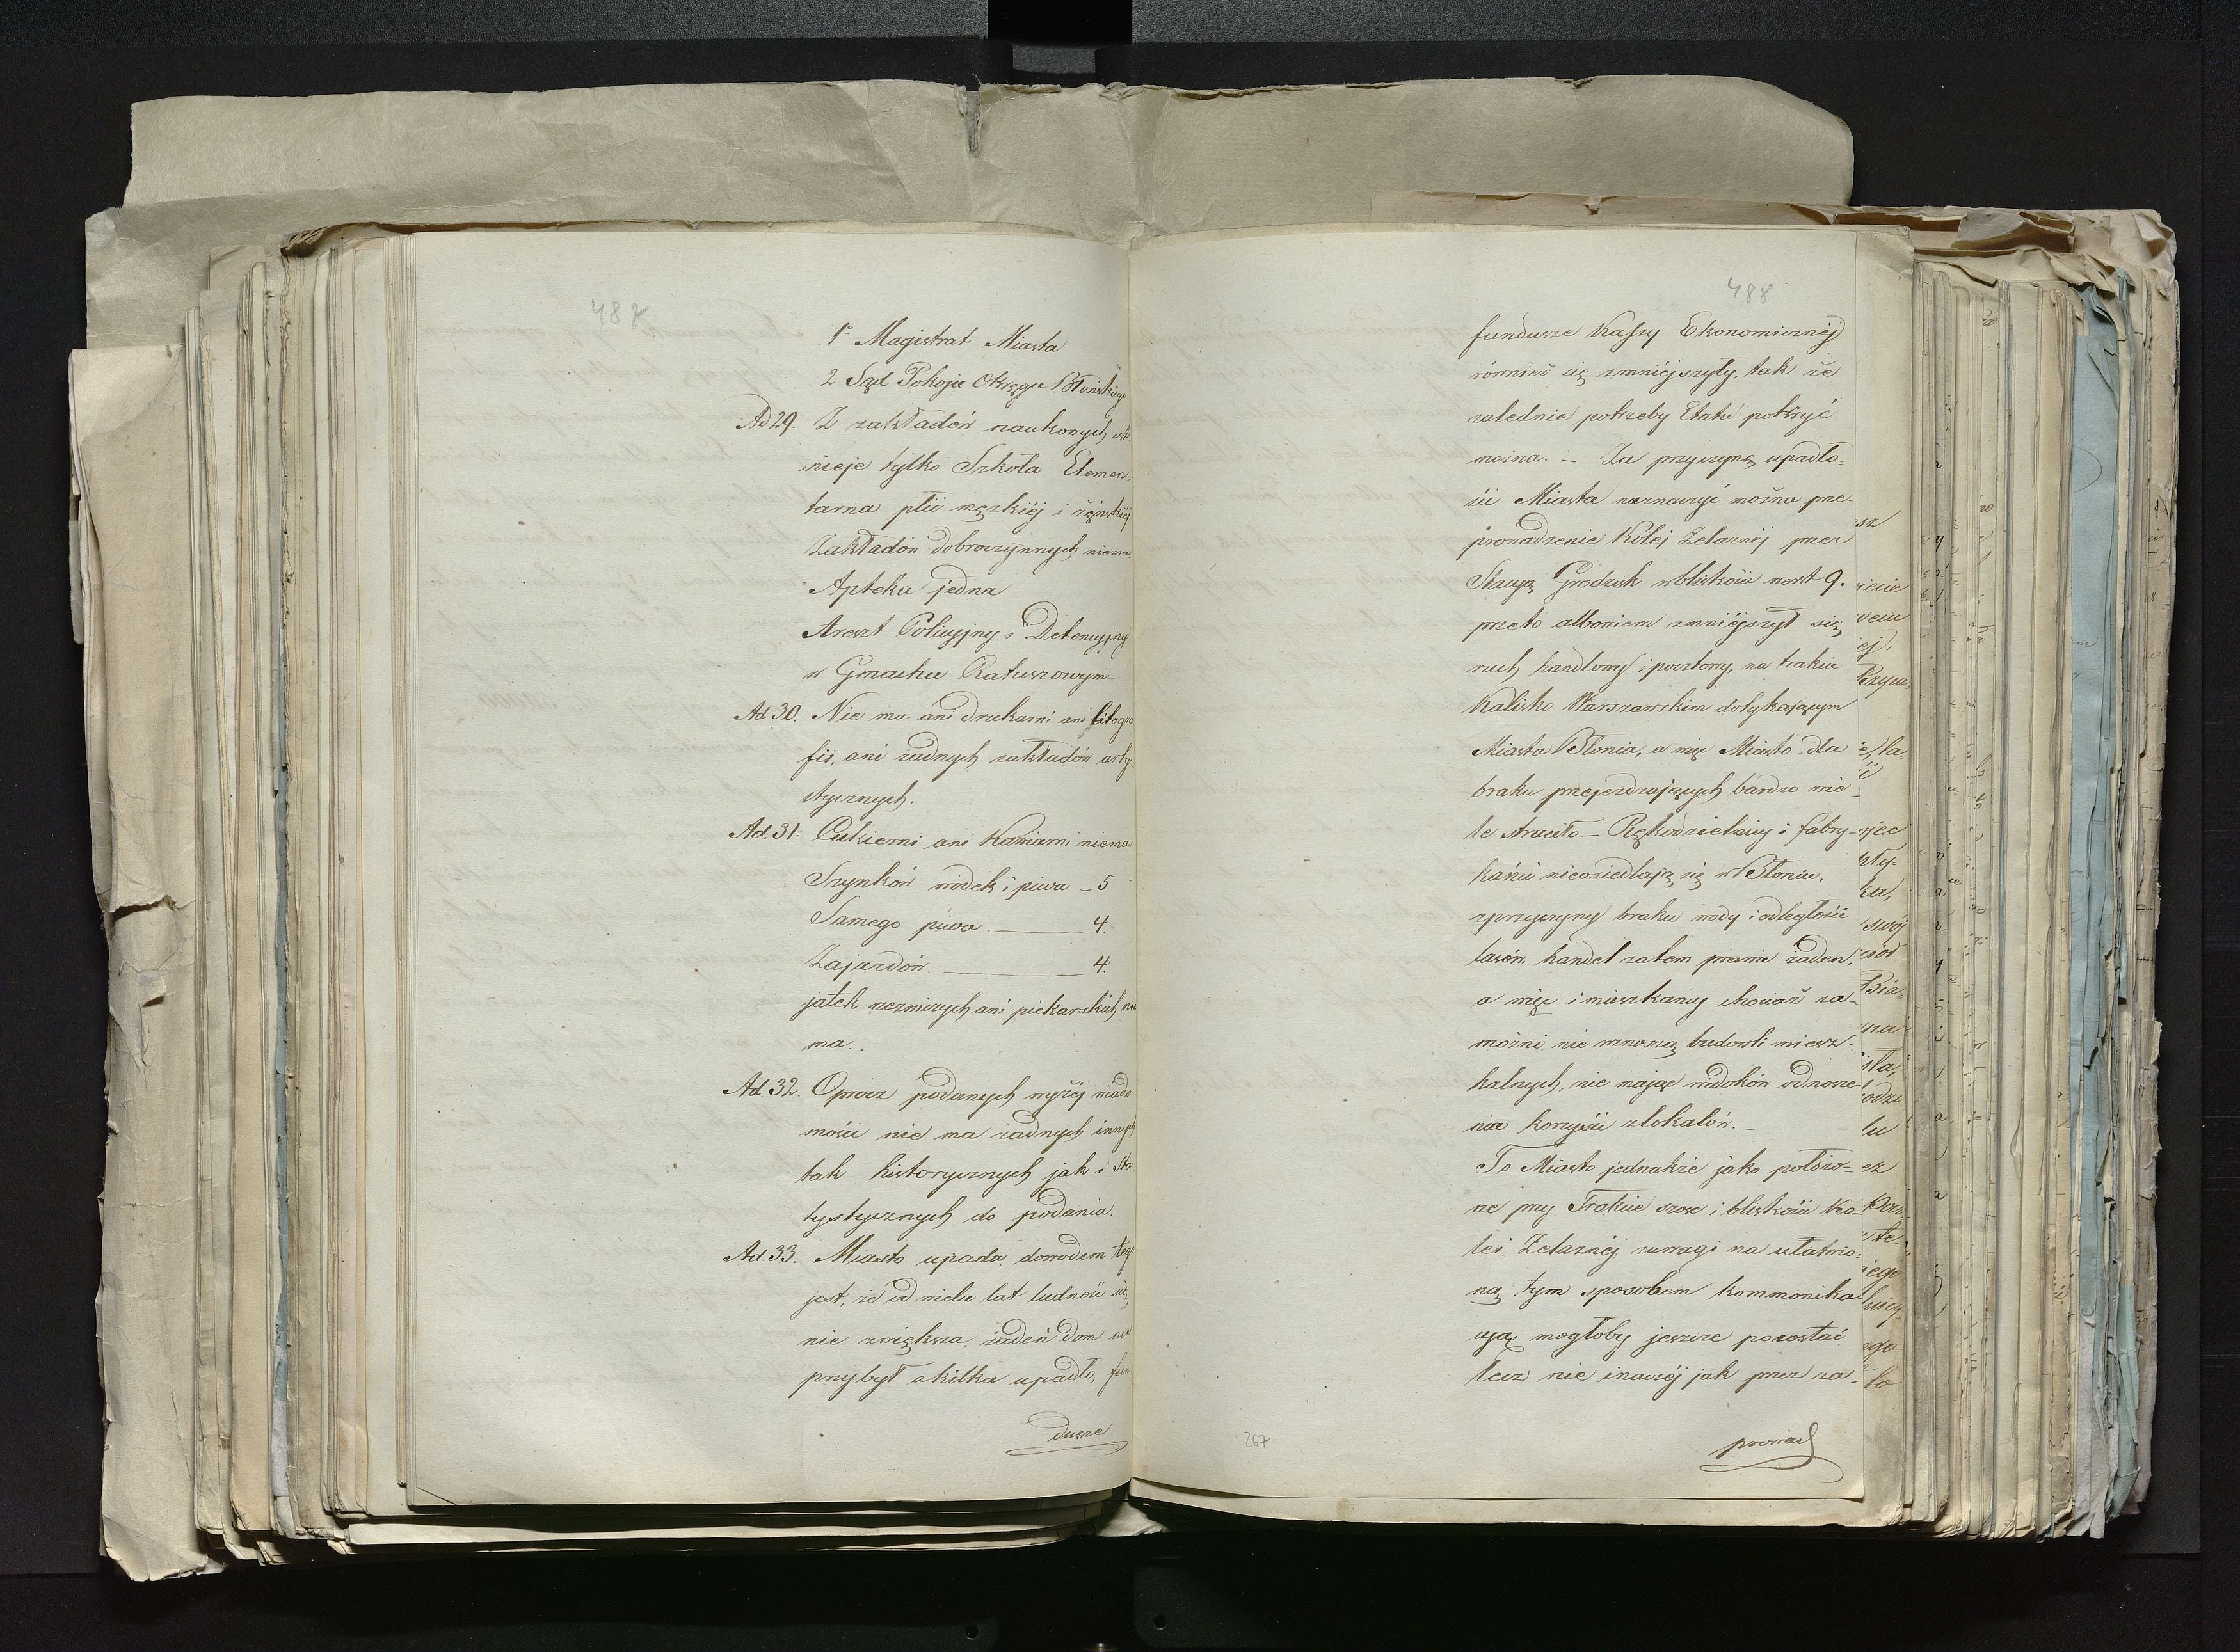 487
1° Magistrat Miasta
2 Sąd Pokoju Okręgu Błońskiego
Ad 29. Z zakładów naukowych ist
nieje tylko Szkoła Elemen
tarna płci męzkiéj i żęńskiéj
Zakładów dobroczynnych niema
Apteka jedna
Areszt Policyjny i Detencyjny
w Gmachu Ratuszowym –
Ad 30. Nie ma ani drukarni ani litogra
fii, ani żadnych zakładów arty
stycznych.
Ad. 31. Cukierni ani Kawiarni niema
Szynków wódek i piwa – 5
Samego piwa 4
Zajazdów 4.
jatek rzeźniczych ani piekarskich nie
ma.
Ad. 32. Oprócz podanych wyżéj wiado
mości nie ma żadnych innych
tak historycznych jak i sta
tystycznych do podania.
Ad. 33. Miasto upada, dowodem tego
jest, że od wielu lat ludność się
nie zwiększa, żaden dom nie
przybył a kilka upadło, fun
dusze
488
fundusze Kassy Ekonomicznéj
również się zmniéjszyły, tak że
zalednie potrzeby Etatu pokryć
można. – Za przyczynę upadło=
ści Miasta naznaczyć można prze-
prowadzenie Kolej Żelaznéj przez
Stacyę Grodzisk w bliskości werst 9.
przeto albowiem zmniéjszył się
ruch handlowy i pocztowy, na trakcie
Kalisko Warszawskim dotykającym
Miasta Błonia, a więc Miasto dla
braku przejeżdzających bardzo wie-
le straciło – Rękodzielnicy i fabry-
kańci nieosiedlają się w Błoniu,
z przyczyny braku wody i odległości
lasów, handel zatem prawie żaden,
a więc i mieszkańcy chociaż za-
możni, nie wznoszą budowli miesz-
kalnych, nie mając widoków odnosze-
nia korzyści z lokalów. –
To Miasto jednakże jako położo=
ne przy Trakcie szose i bliskości Ko-
lei Żelaznéj zuwagi na ułatwio=
ną tym sposobem kommonika
cyą mogłoby jeszcze powstać
lecz nie inaczéj jak przez za-
prowad
267